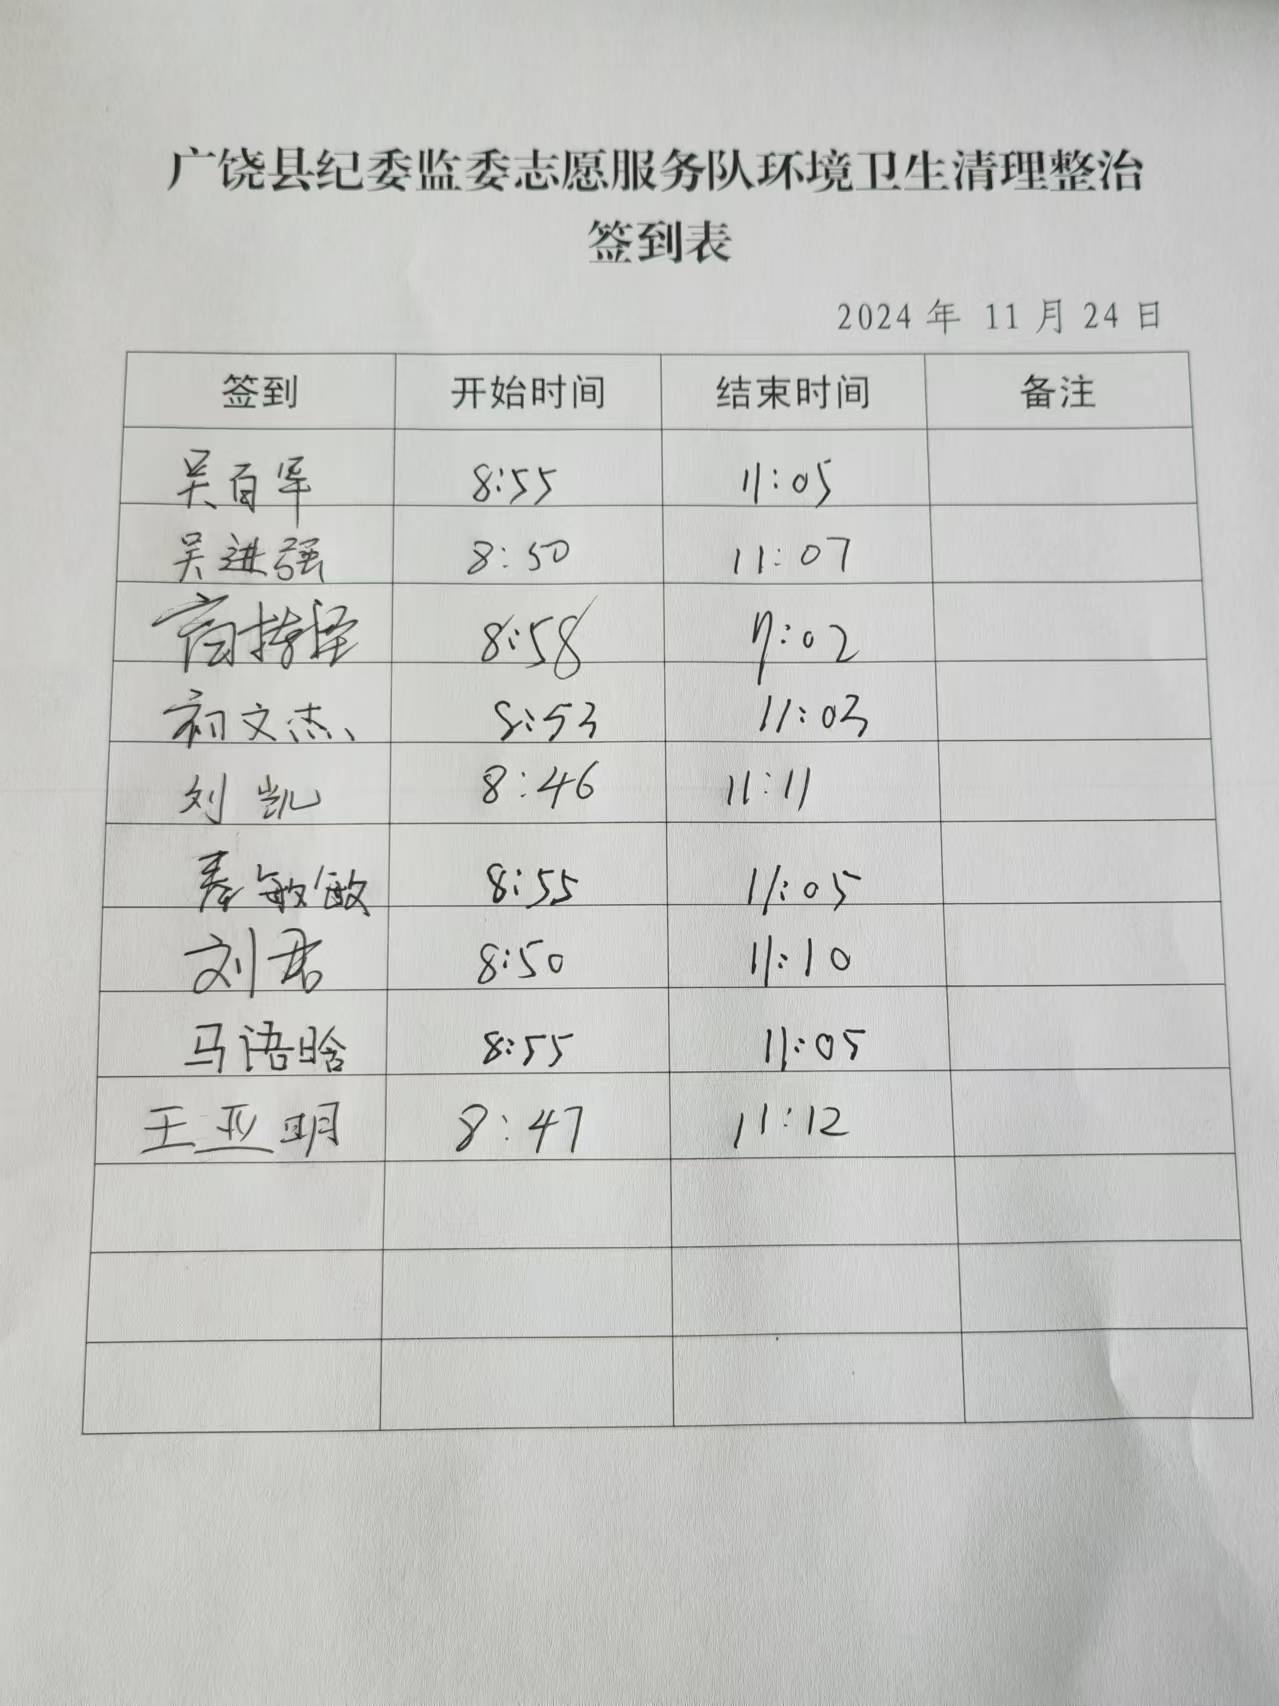 广饶县纪委监委志愿服务队环境卫生清理整治
签到表
2024 年 11 月 24 日
签到 开始时间 结束时间 备注
吴百军 8:55 11:05
吴进强 8:50 11:07
8:58 11:02
初文杰 8:53 11:03
刘凯 8:46 11:11
秦敏敏 8:55 11:05
刘君 8:50 11:10
马语晗 8:55 11:05
王亚明 8:47 11:12